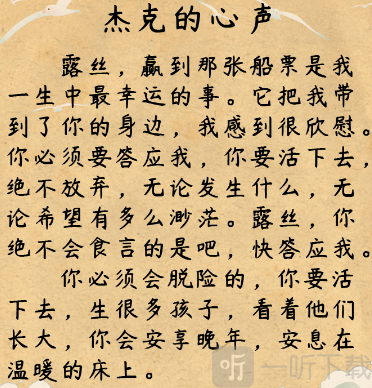 杰克的心声
露丝，赢到那张船票是我
一生中最幸运的事。它把我带
到了你的身边，我感到很欣慰。
你必须要答应我，你要活下去，
绝不放弃，无论发生什么，无
论希望有多么渺茫。露丝，你
绝不会食言的是吧，快答应我。
你必须会脱险的，你要活
下去，生很多孩子，看着他们
长大，你会安享晚年，安息在
温暖的床上。
听 一听下载